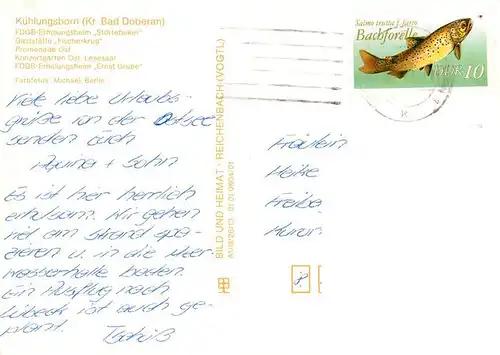 Kühlungsborn (Kr. Bad Doberan)
FDGB-Erholungsheim „Störtebeker“
Gaststätte „Fischerkrug“
Promenade Ost
Konzertgarten Ost, Lesesaal
FDGB-Erholungsheim „Ernst Grube“
Farbfotos: Michael, Berlin
Viele liebe Urlaubs-
grüße von der Ostsee
senden euch
+ Sohn
Es ist hier herrlich
erholsam. Wir gehen
viel am Strand spa-
zieren u. in die Meer-
wasserhalle baden.
Ein Ausflug nach
ist auch ge-
plant. Tschüß
BILD UND HEIMAT · REICHENBACH (VOGTL)
Salmo trutta f. fario
Bachforelle
DDR 10
Fräulein
Heike